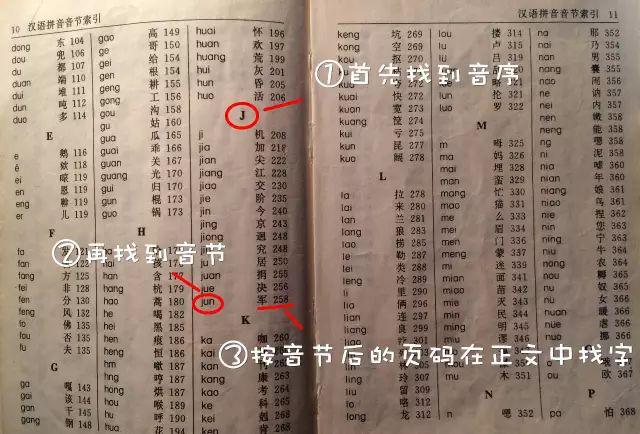 10 汉语拼音音节索引
dong 东 104
dou 兜 106
du 都 107
duan 端 110
dui 堆 111
dun 吨 112
duo 多 114
E
e 鹅 116
ê 欸 118
ei 119
en 恩 119
eng 鞥 119
er 儿 119
F
fa
fang 方 125
fei 非
fen 分 130
feng 风
fo 佛
fou 否 135
fu 夫 135
G
ga 嘎 143
gai 该 144
gan 干 145
gang 钢 148
gao 高 149
ge 哥 150
gei 给 154
gen 根 154
geng 耕 155
gong 工 156
gou 沟 158
gu 姑 160
gua 瓜 165
guai 乖 166
guan 关 167
guang 光 170
gui 归 170
gun 棍 173
guo 锅 173
H
han 含
hang 杭 179
hao 蒿 180
he 喝 182
hei 黑 185
hen 痕 186
heng 恒 186
hm 噷 187
hng 哼 187
hong 烘 187
hou 喉 189
hu 呼 191
hua 花 194
huai 怀 196
huan 欢 197
huang 荒 199
hui 灰 201
hun 昏 205
huo 活 206
J
ji 机 208
jia 加 218
jian 尖 222
jiang 江 228
jiao 交 230
jie 阶 235
jin 今 240
jing 京 243
jiong 迥 248
jiu 究 248
ju 居 250
juan 捐 255
jue 决 256
jun 军 258
K
ka 咖 260
kang 康 263
kao 考 264
ke 科 265
kei 剋 268
ken 肯 268
汉语拼音音节索引 11
keng 坑 269
kong 空 269
kou 抠
kuai 快 272
kuan 宽 273
kuang 筐 274
kui 亏 275
kun 昆 277
kuo 阔 278
L
la 拉 278
lai 来 280
lan 兰 281
lang 狼 283
lao 捞 285
le 勒 287
lei 类 288
leng 冷 289
li
lia 俩 296
lian 连 297
liang 良
liao 疗
ling 玲
liu 留
lo 咯 312
long 龙 312
lou 搂 314
lu 卢 315
略
lun 抡 321
luo 罗 322
M
m 呣 325
ma 妈 326
mai 埋 328
man 蛮 329
mang 忙 330
mao 猫 331
me 么 333
mei 眉 334
men 门 336
meng 蒙 337
mi 迷 339
mian 面 341
miao 苗 342
mie 灭 343
min 民 344
ming 明 345
miu 谬 346
mu 木 351
N
n 嗯 352
na 那 352
nai 乃 354
nan 男 355
nang 囊 355
ne 讷 357
nei 内 357
nen 嫩 358
neng 能 358
ng 嗯
ni 泥 358
nian 年 360
niang 娘 361
niao 鸟 361
nie 捏 362
nin 您 362
ning 宁 363
niu 牛 364
nong 农 364
nou 耨 365
nu 奴 365
nü 女 366
nuan 暖 366
欧 367
P
pa 怕 368
①首先找到音序
②再找到音节
③按音节后的页码在正文中找字